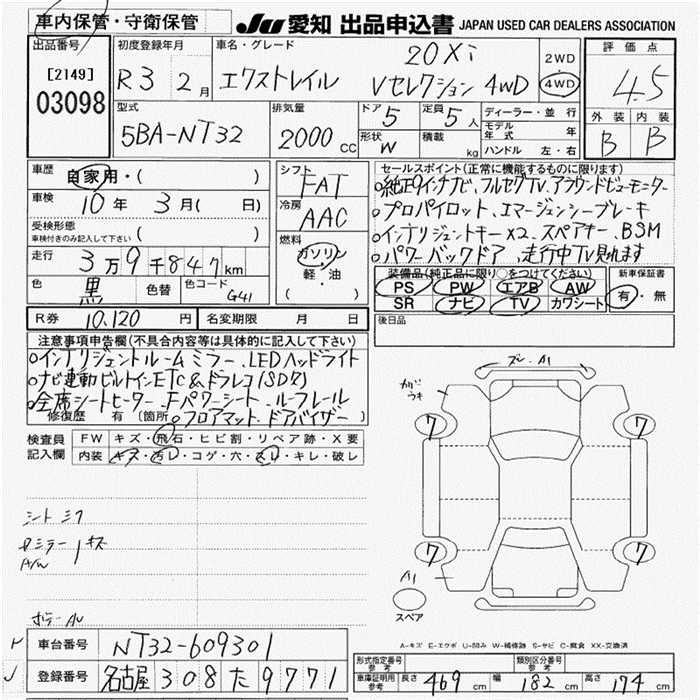 車内保管・守衛保管
JU 愛知 出品申込書 JAPAN USED CAR DEALERS ASSOCIATION
出品番号
[2149]
03098
初度登録年月
R3 2月
車名・グレード
エクストレイル
20Xi
Vセレクション 4WD
2WD
4WD
評価点
4.5
外装 内装
B B
型式
5BA-NT32
排気量
2000 CC
ドア 5
定員 5人
形状 W
積載 kg
ディーラー・並行
モデル年式 年
ハンドル 左・右
車歴
自家用・( )
車検
10年 3月( 日)
受検形態
車検付きのみ記入して下さい ( )
走行
3万9千847km
色 黒
色替
色コード G41
シフト
FAT
冷房
AAC
燃料
ガソリン
軽・油
( )
セールスポイント(正常に機能するものに限ります)
○純正9インチナビ、フルセグTV、アラウンドビューモニター
○プロパイロット、エマージェンシーブレーキ
○インテリジェントキーX2、スペアキー、BSM
○パワーバックドア、走行中TV見れます
装備品(純正品に限り○をつけてください)
PS PW エアB AW
SR ナビ TV カワシート
新車保証書
有・無
R券 10,120円
名変期限 月 日
後日品
注意事項申告欄(不具合内容等は具体的に記入して下さい)
○インテリジェントルームミラー、LEDヘッドライト
○ナビ連動ビルトインETC&ドラレコ(SD欠)
○全席シートヒーター、Fパワーシート、ルーフレール
修復歴 有(箇所 ○フロアマット、ドアバイザー)
検査員記入欄
FW キズ・飛石・ヒビ割・リペア跡・X要
内装 キズ・汚レ・コゲ・穴・スレ・キレ・破レ
シート シワ
キズ
A/W
A1
7 7
7 7
A1
スペア
A-キズ E-エクボ U-凹み W-補修跡 S-サビ C-腐食 XX-交換済
車台番号 NT32-609301
登録番号 名古屋 308 た 9771
形式指定番号 参考
類別区分番号 参考
車庫証明用 参考 長さ 469cm 幅 182cm 高さ 174cm